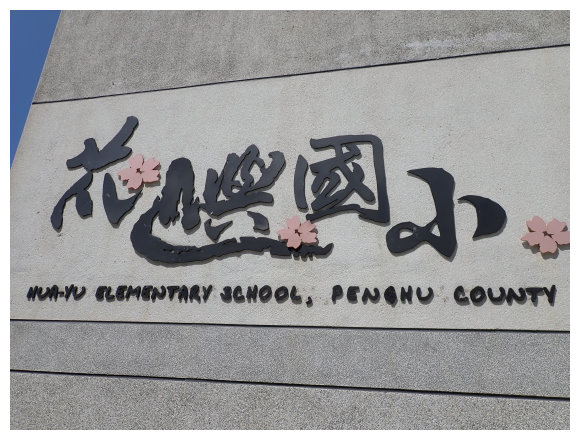 花嶼國小
HUA-YU ELEMENTARY SCHOOL, PENGHU COUNTY